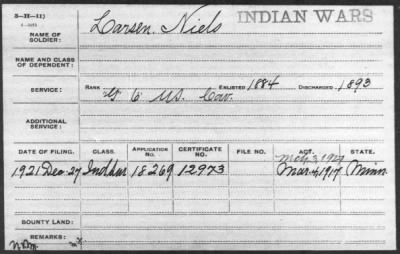 3-H-11)
INDIAN WARS
NAME OF SOLDIER: Larsen, Niels
NAME AND CLASS OF DEPENDENT:
SERVICE: RANK G 6 US. Cav. ENLISTED 1884 DISCHARGED 1893
ADDITIONAL SERVICE:
DATE OF FILING. CLASS. APPLICATION No. CERTIFICATE No. FILE NO. ACT. STATE.
Mch 3, 1927
1921 Dec 27 Ind Sur 18269 12973 Mar. 4, 1917 Minn
BOUNTY LAND:
REMARKS: